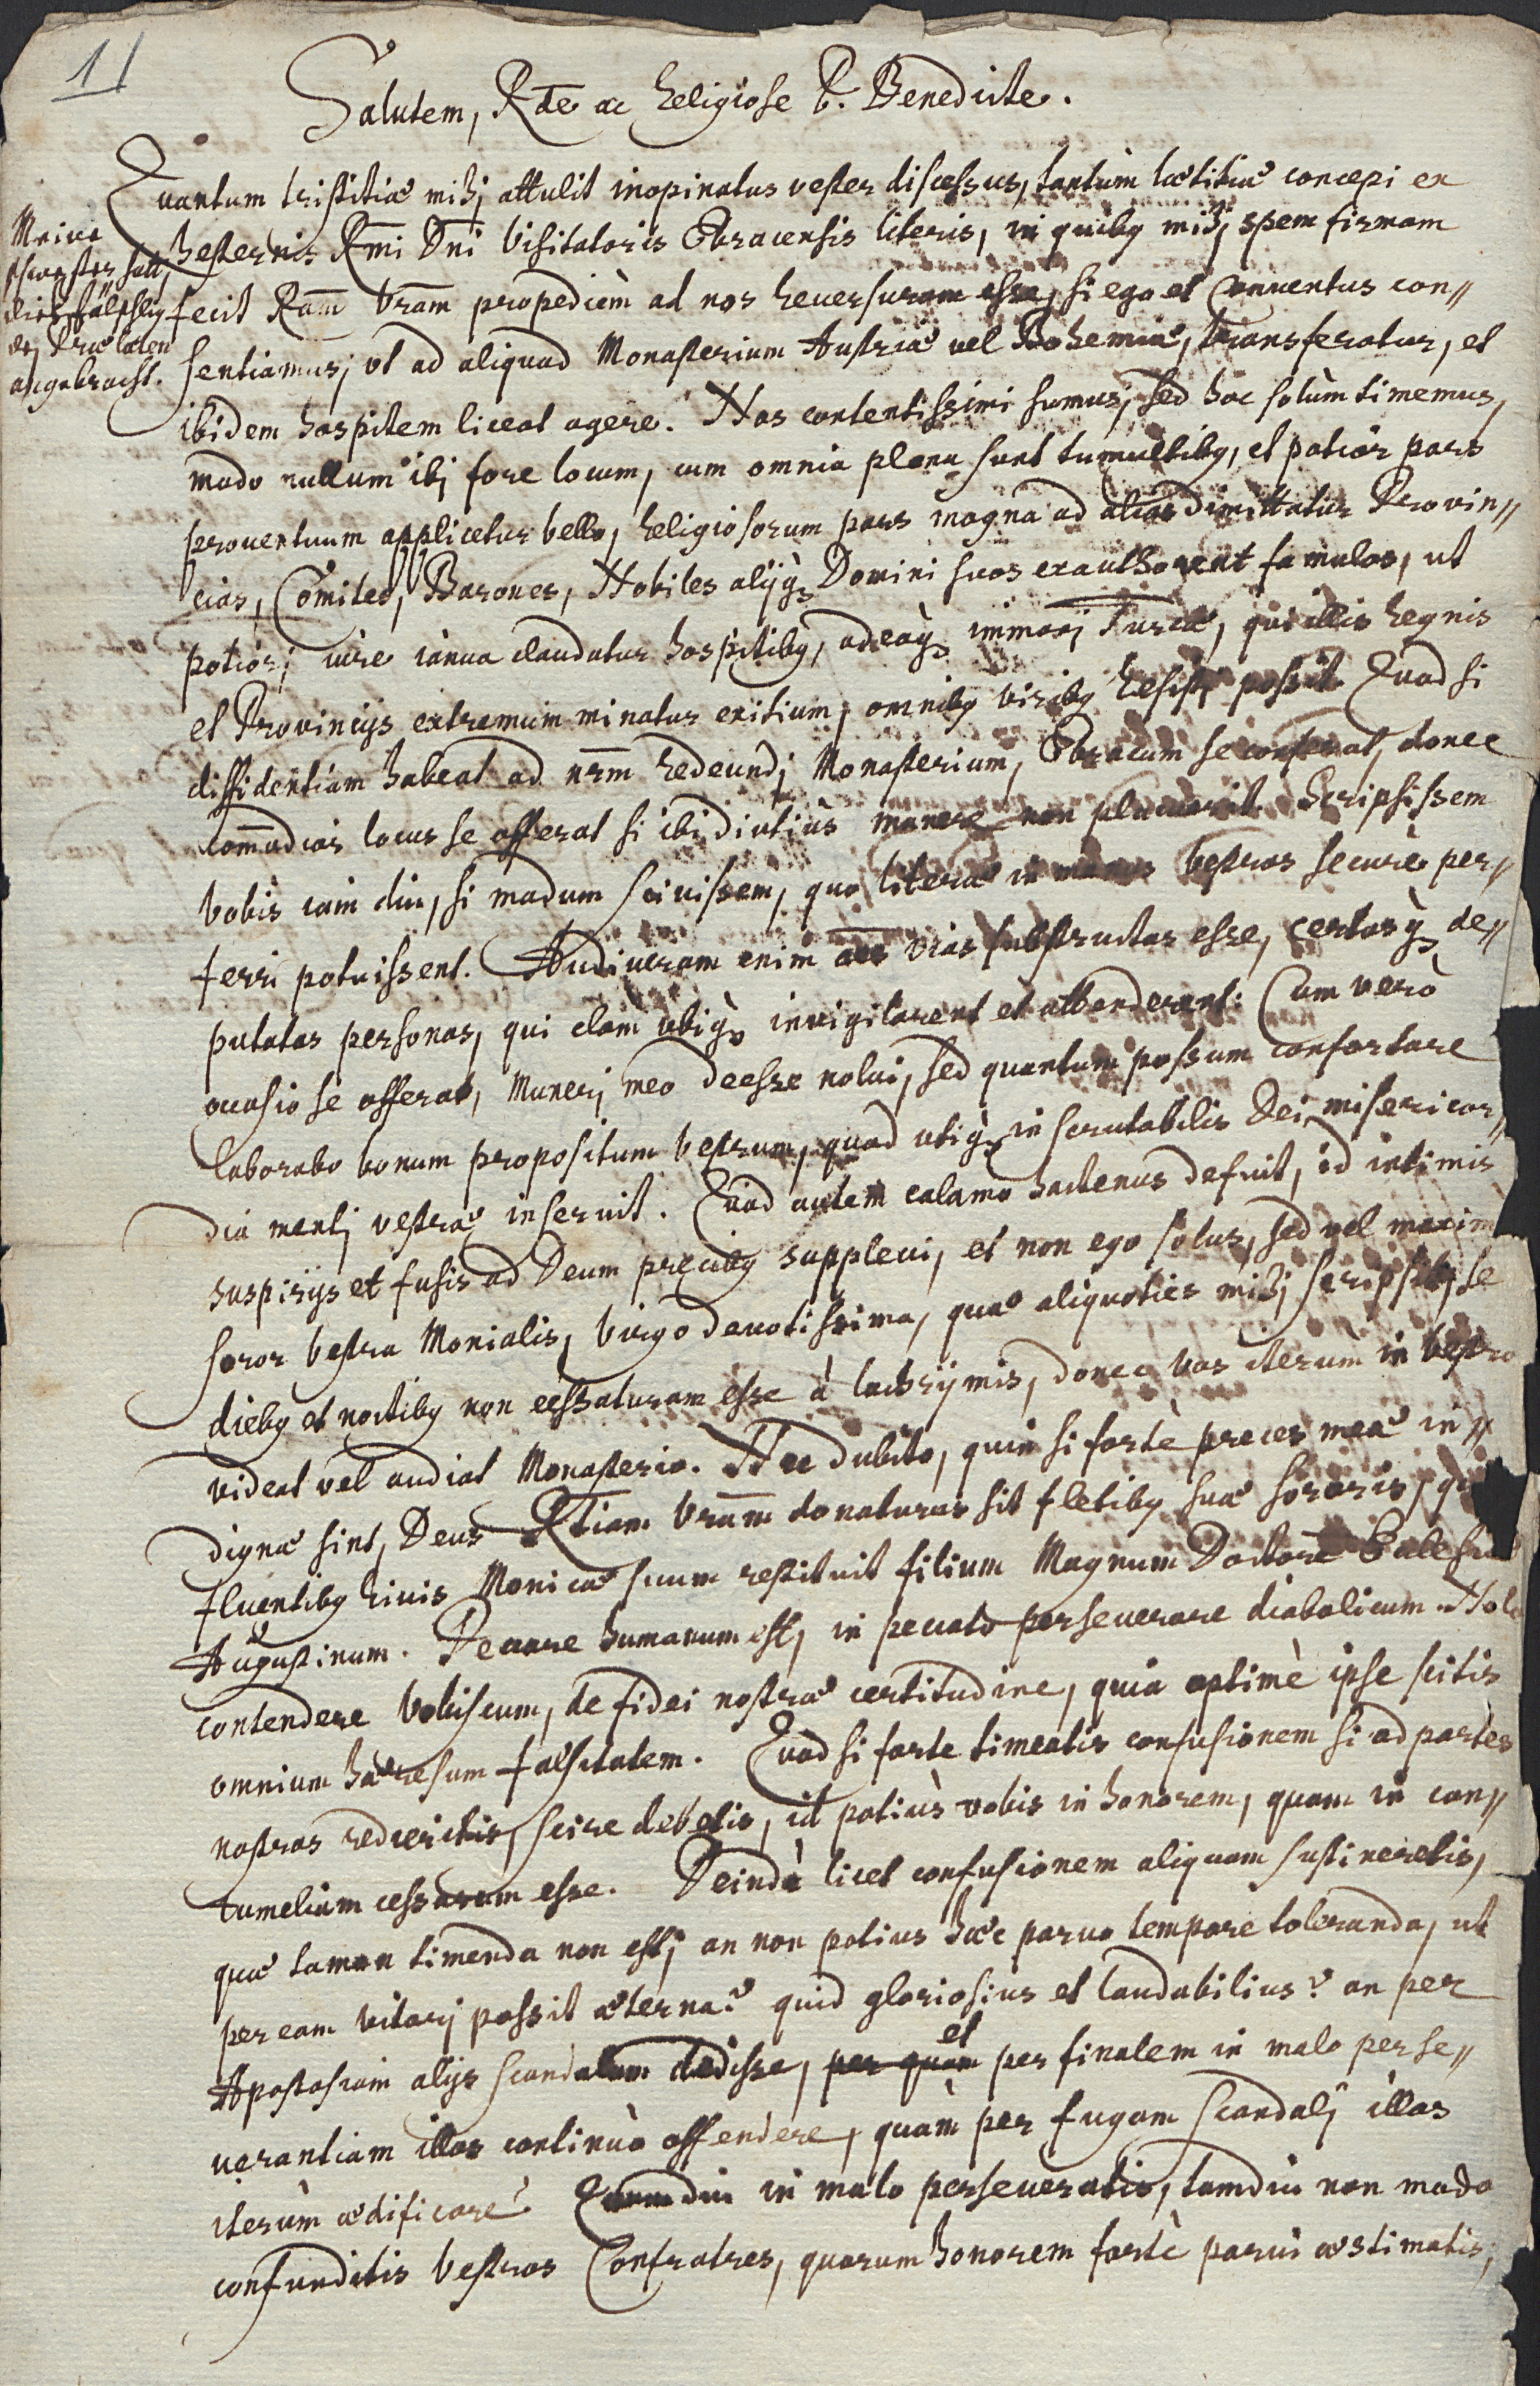 11
Salutem, Rde ac Religiose P. Benedicte.
Quantum tristitiæ mihj attulit inopinatus vester discessus, tantùm lætitiæ concepi ex
hesternis Rmi Dni Visitatoris Obracensis literis, in quibq mihj spem firmam
fecit Ram Vram propedièm ad nos reuersuram esse, si ego et Conuentus con//
sentiamus, vt ad aliquod Monasterium Austriæ uel Bohemiæ, transferatur, et
ibidem hospitem liceat agere. Nos contentissimi sumus, sed hoc solùm timemus,
modo nullum ibj fore locum, cum omnia plena sunt tumultibq, et potior pars
prouentuum applicetur bello, religiosorum pars magna ad alias dimittatur Prouin//
cias, Comites, Barones, Nobiles alijq Domini suos exauthorent famulos, ut
potiorj iure ianua claudatur hospitibq, adeoq immanj Turcæ, qui illis regnis
et Prouincijs extremum minatur exitium, omnibq viribq resistj possit. Quod si
diffidentiam habeat ad nrm redeundj Monasterium, Obracum se conferat, donec
commodior locus se offerat si ibi diutiùs manere non placuerit. Scripsissem
Vobis iam diu, si modum sciuissem, quo literæ in manus vestras securè per//
ferri potuissent. Audiueram enim oes vias substructas esse, certasq de//
putatas personas, qui clam ubiq inuigilarent et attenderent. Cum verò
occasio se offerat, Munerj meo deesse nolui, sed quantum possum confortare
laborabo bonum propositum vestrum, quod utiq inscrutabilis Dei misericor//
dia mentj vestræ inseruit. Quod autem calamo hactenus defuit, id intimis
suspirijs et fusis ad Deum precibq suppleui, et non ego solus, sed vel maxim
soror vestra Monialis, Virgo deuotissima, quæ aliquoties mihj scripsit, se
diebq et noctibq non cessaturam esse à lachrÿmis, donec vos iterùm in vestro
videat vel audiat Monasterio. Nec dubito, quin si fortè preces meæ in//
dignæ sint, Deus Rtiam Vram donaturus sit fletibq suæ sororis, qui
fluentibq riuis Monicæ suum restituit filium Magnum Doctorē Ecclesiæ
Augustinum. Peccare humanum est, in peccato perseuerare diabolicum. Nolo
contendere Vobiscum, de fidei nostræ certitudine, quia optimè ipse scitis
omnium hæresum falsitatem. Quod si forte timeatis confusionem si ad partes
nostras redieritis, scire debetis, id potiùs vobis in honorem, quam in con//
tumeliam cessurum esse. Deindè licet confusionem aliquam sustineretis,
quæ tamen timenda non est, an non potius hæc paruo tempore toleranda, ut
per eam vitarj possit æterna? quid gloriosius et laudabilius? an per
Apostasiam alijs scandalum dedisse, per quam et per finalem in malo perse//
uerantiam illos continuò offendere, quàm per fugam scandalj illos
iterùm ædificare? Quamdiu in malo perseueratis, tamdiu non modo
confunditis vestros Confratres, quorum honorem fortè parui æstimatis,